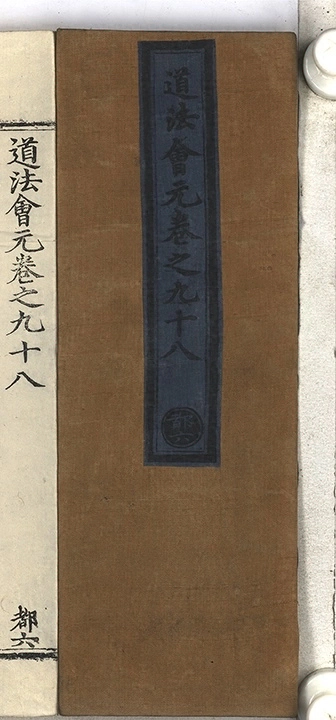 道法會元卷之九十八
都六
道法會元卷之九十八
都六